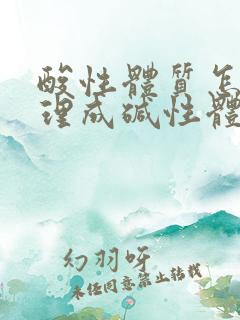 酸性體質怎
理成碱性體
幻羽呀
未經同意禁止转载